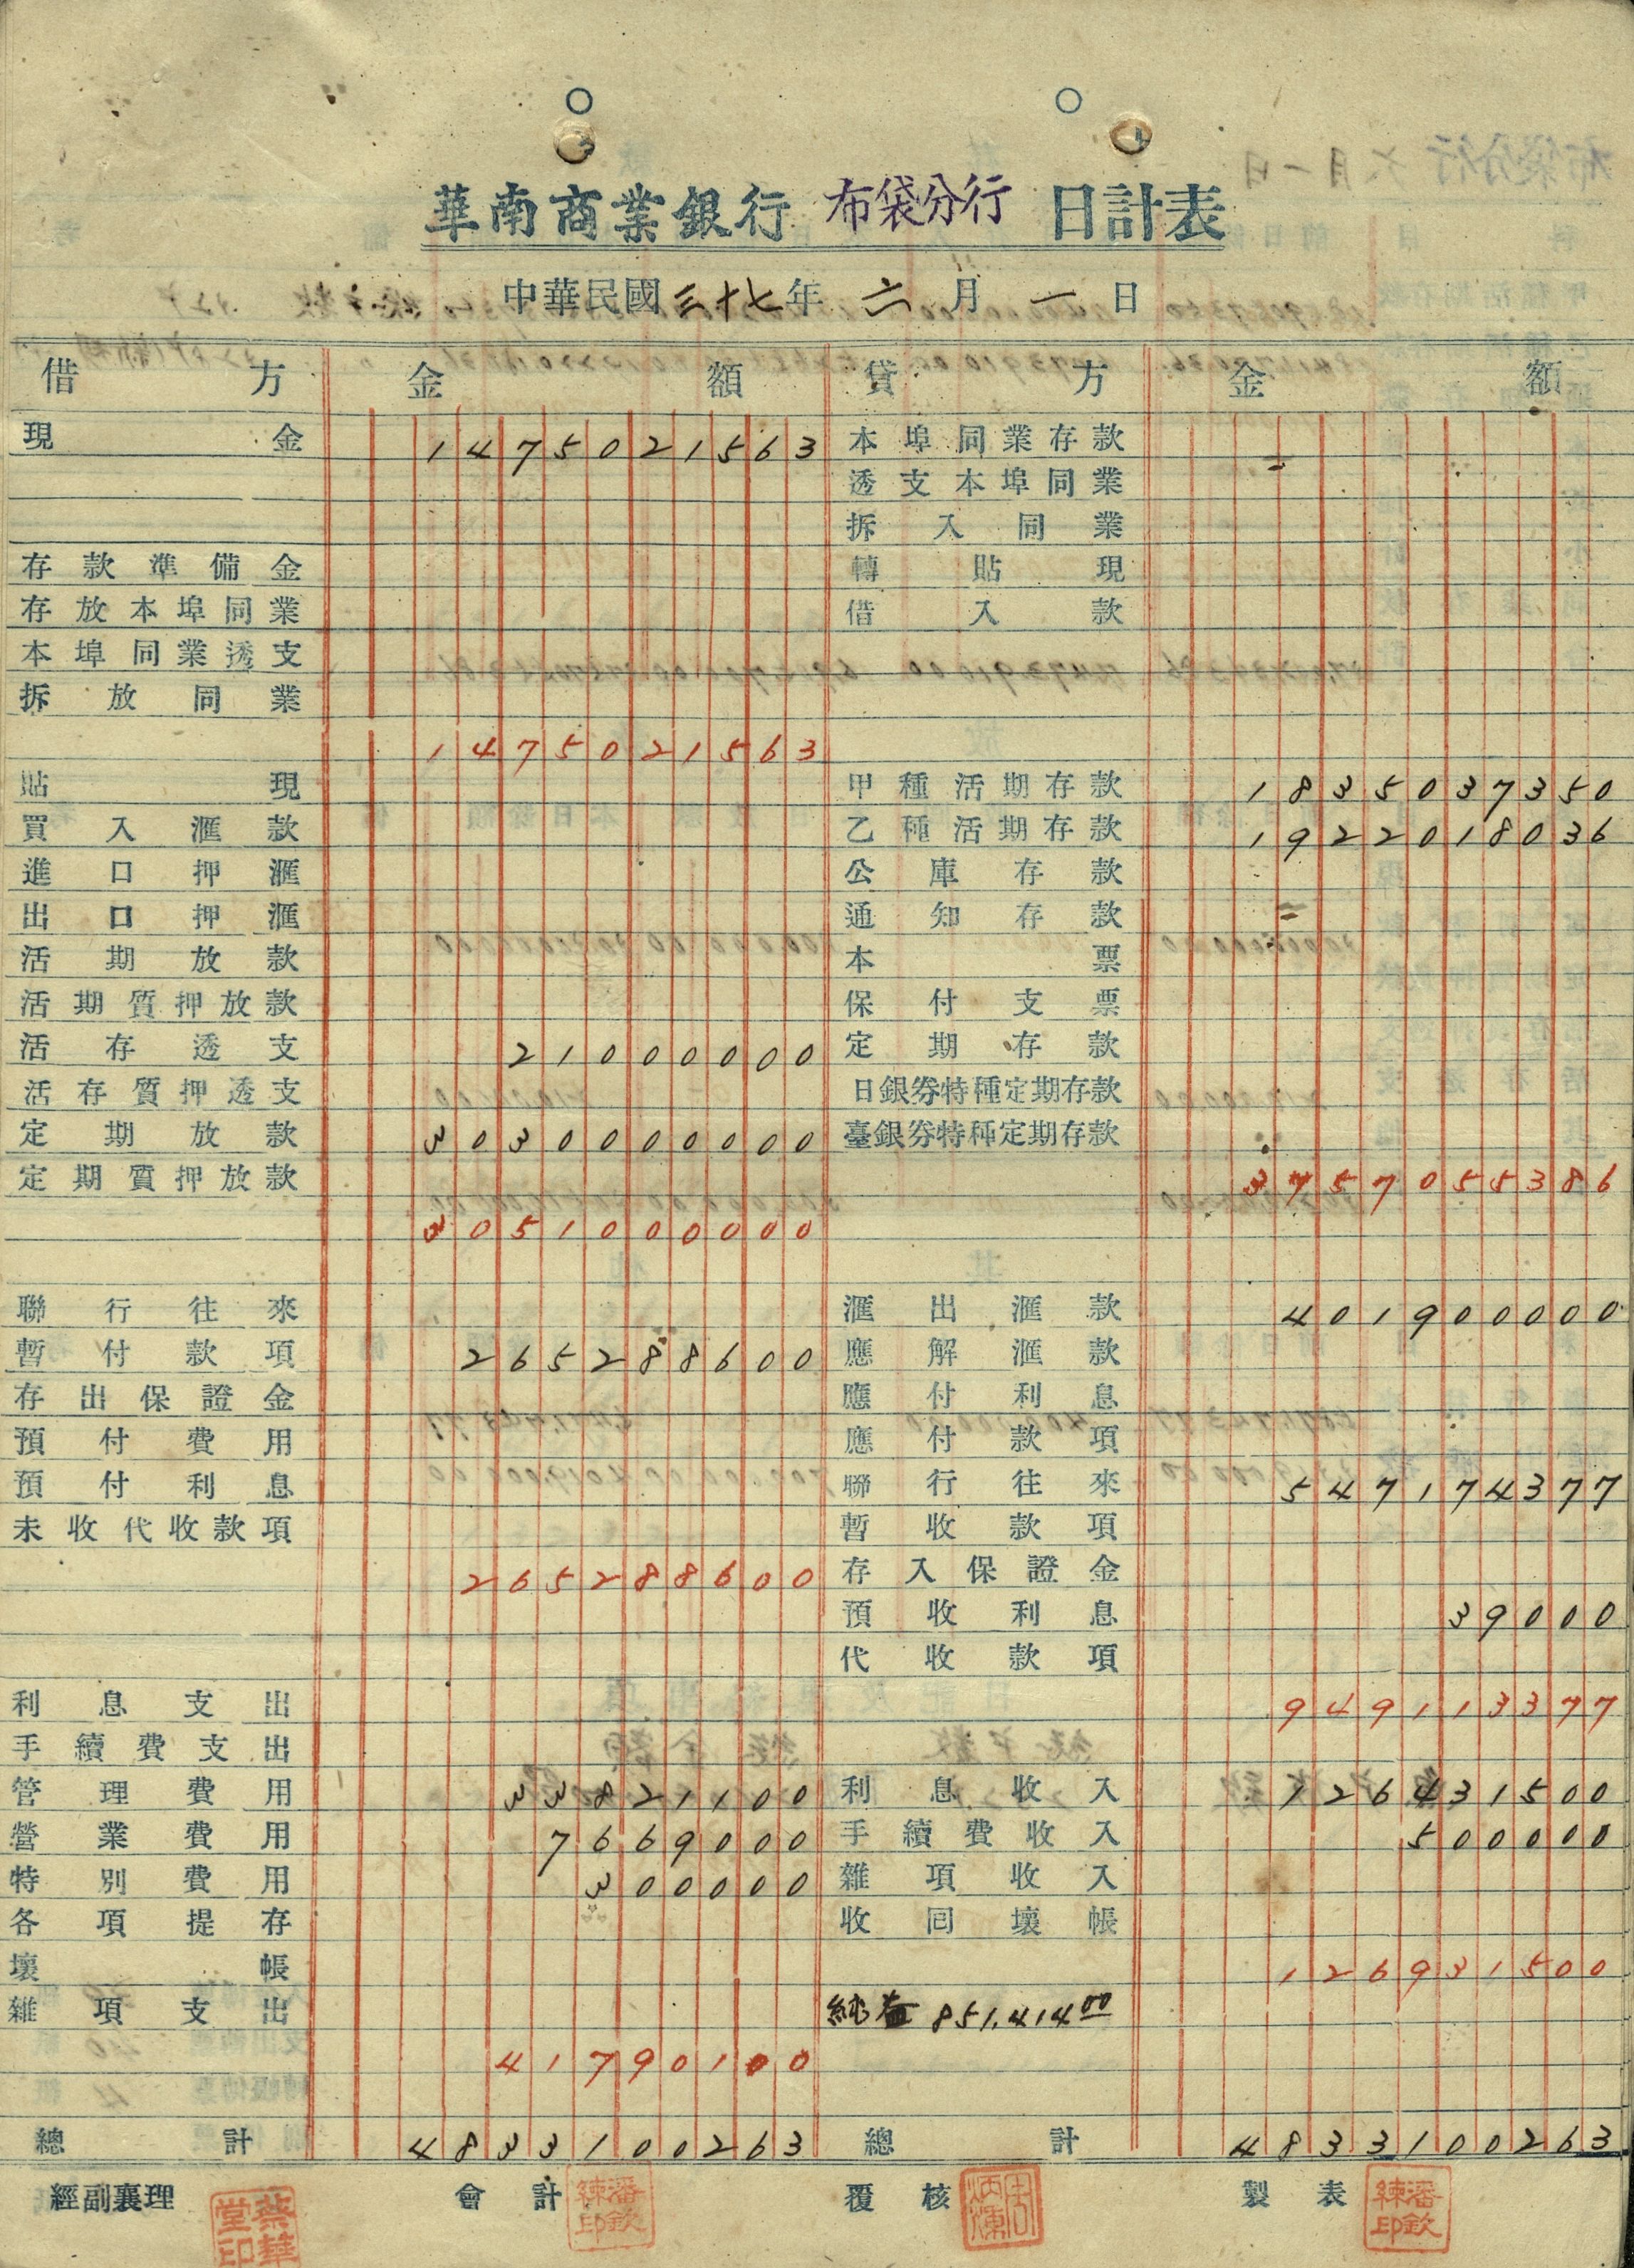 華南商業銀行 布袋分行 日計表
中華民國 三十七年 六月 一日
借方 金額 貸方 金額
現金 1475021563 本埠同業存款
透支本埠同業
拆入同業
存款準備金 轉貼現
存放本埠同業 借入款
本埠同業透支
拆放同業
1475021563
貼現 甲種活期存款 1835037350
買入滙款 乙種活期存款 1922018036
進口押滙 公庫存款
出口押滙 通知存款
活期放款 本票
活期質押放款 保付支票
活存透支 21000000 定期存款
活存質押透支 日銀券特種定期存款
定期放款 3030000000 臺銀券特種定期存款
定期質押放款 3757055386
3051000000
聯行往來 滙出滙款 401900000
暫付款項 265288600 應解滙款
存出保證金 應付利息
預付費用 應付款項
預付利息 聯行往來 547174377
未收代收款項 暫收款項
265288600 存入保證金
預收利息 39000
代收款項
利息支出 949113377
手續費支出
管理費用 33821100 利息收入 126431500
營業費用 7669000 手續費收入 500000
特別費用 300000 雜項收入
各項提存 收回壞帳
壞帳 126931500
雜項支出 純益 851,414.00
41790100
總計 4833100263 總計 4833100263
經副襄理 蔡華堂印 會計 潘欽練印 覆核 周炳煇 製表 潘欽練印